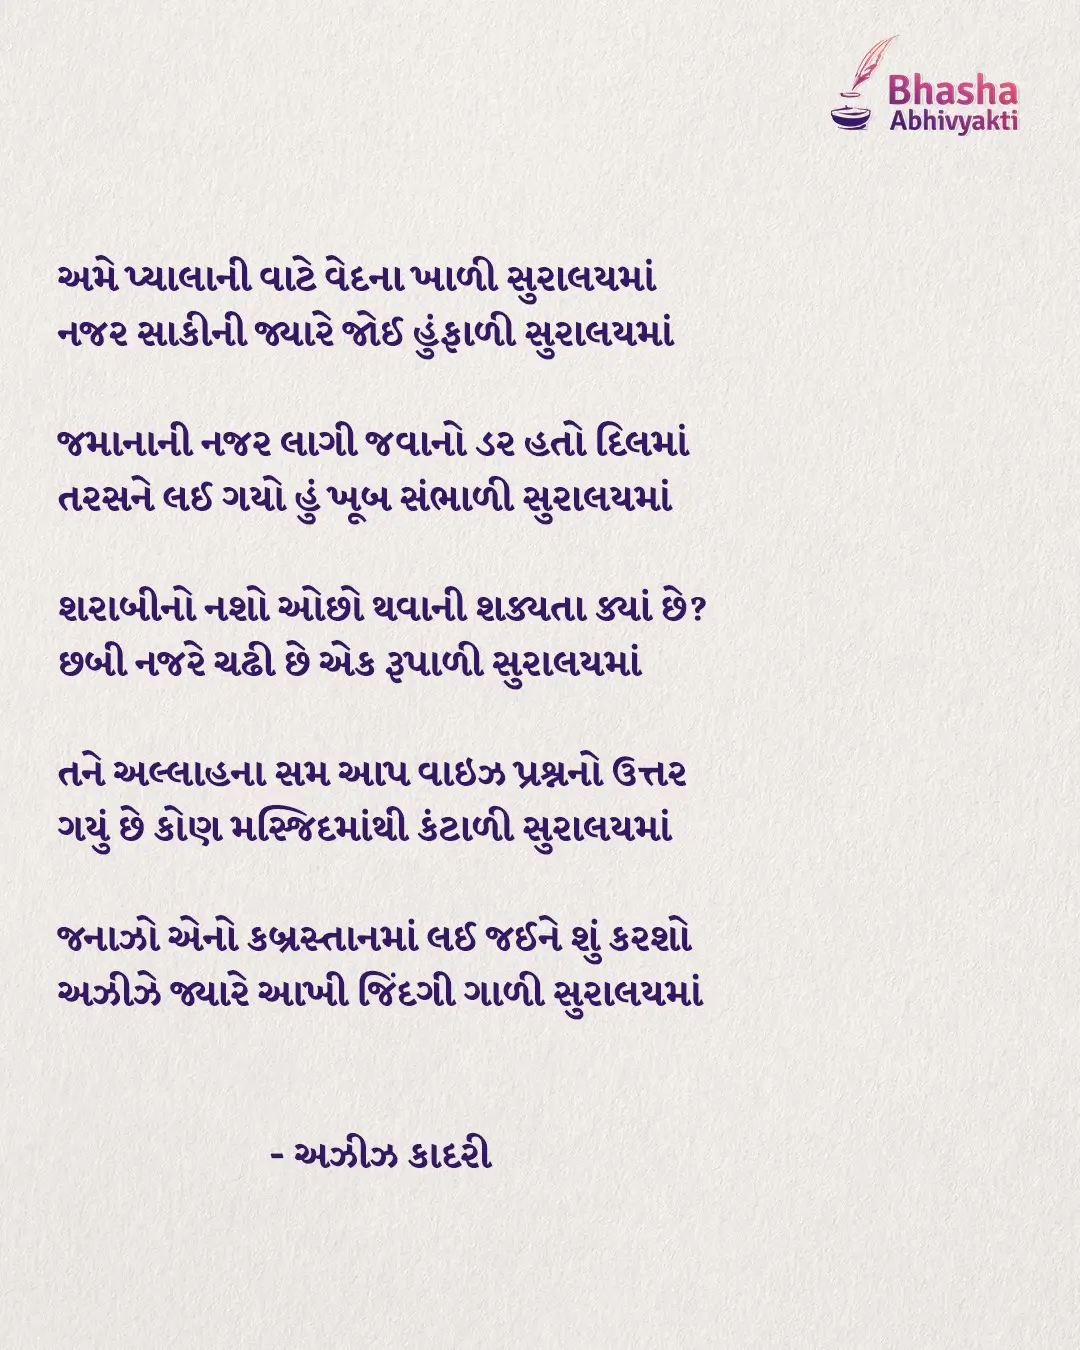 Bhasha
Abhivyakti
અમે પ્યાલાની વાટે વેદના ખાળી સુરાલયમાં
નજર સાકીની જ્યારે જોઈ હુંફાળી સુરાલયમાં
જમાનાની નજર લાગી જવાનો ડર હતો દિલમાં
તરસને લઈ ગયો હું ખૂબ સંભાળી સુરાલયમાં
શરાબીનો નશો ઓછો થવાની શક્યતા ક્યાં છે?
છબી નજરે ચઢી છે એક રૂપાળી સુરાલયમાં
તને અલ્લાહના સમ આપ વાઇઝ પ્રશ્નનો ઉત્તર
ગયું છે કોણ મસ્જિદમાંથી કંટાળી સુરાલયમાં
જનાઝો એનો કબ્રસ્તાનમાં લઈ જઈને શું કરશો
અઝીઝે જ્યારે આખી જિંદગી ગાળી સુરાલયમાં
- અઝીઝ કાદરી